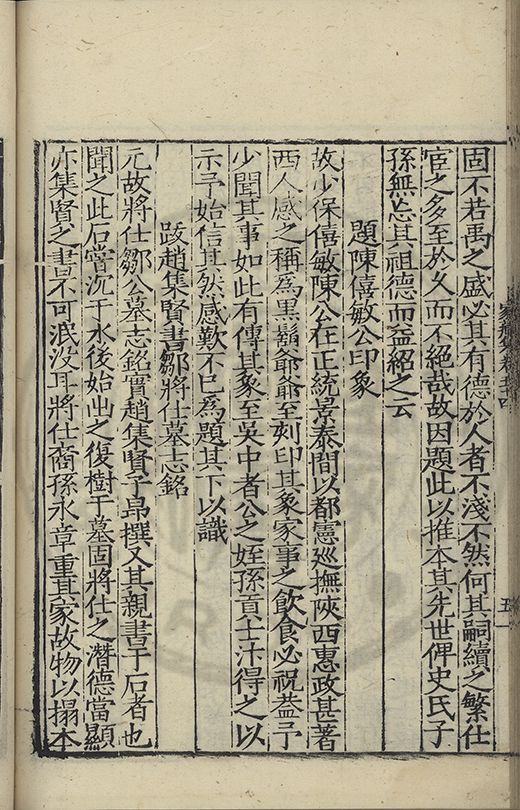 固不若禹之盛必其有德於人者不淺不然何其嗣續之繁仕
宦之多至於久而不絕哉故因題此以推本其先世俾史氏子
孫無忘其祖德而益紹之云
題陳僖敏公印象
故少保僖敏陳公在正統景泰間以都憲巡撫陝西惠政甚著
西人感之稱爲黑鬍爺爺至刻印其象家事之飲食必祝蓋予
少聞其事如此有傳其象至吳中者公之姪孫貢士汴得之以
示予始信其然感歎不已爲題其下以識
跋趙集賢書鄒將仕墓志銘
元故將仕鄒公墓志銘實趙集賢子昻撰又其親書于石者也
聞之此石嘗沉于水後始出之復樹于墓固將仕之潛德當顯
亦集賢之書不可泯没耳將仕裔孫永章重其家故物以搨本
五